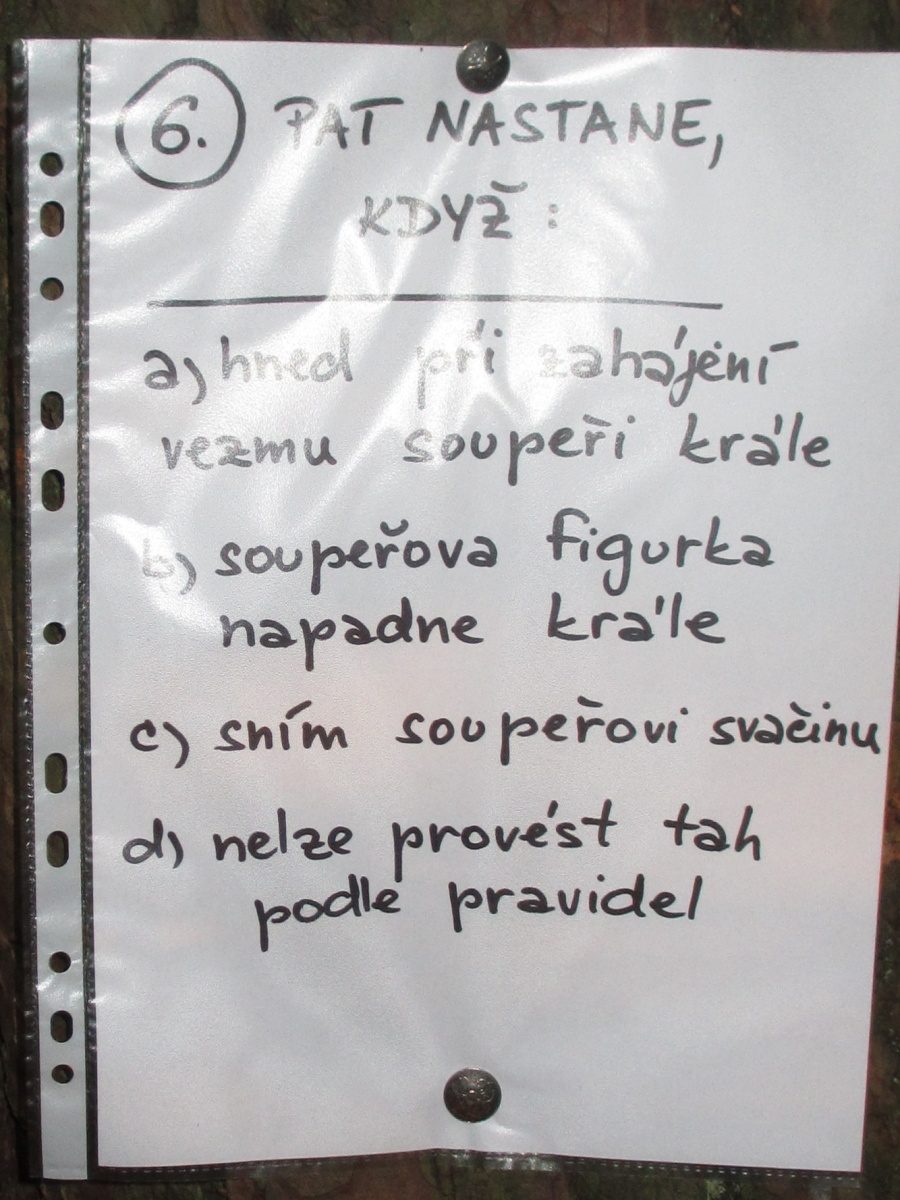 6. PAT NASTANE,
KDYŽ:
a) hned při zahájení
vezmu soupeři krále
b) soupeřova figurka
napadne krále
c) sním soupeřovi svačinu
d) nelze provést tah
podle pravidel